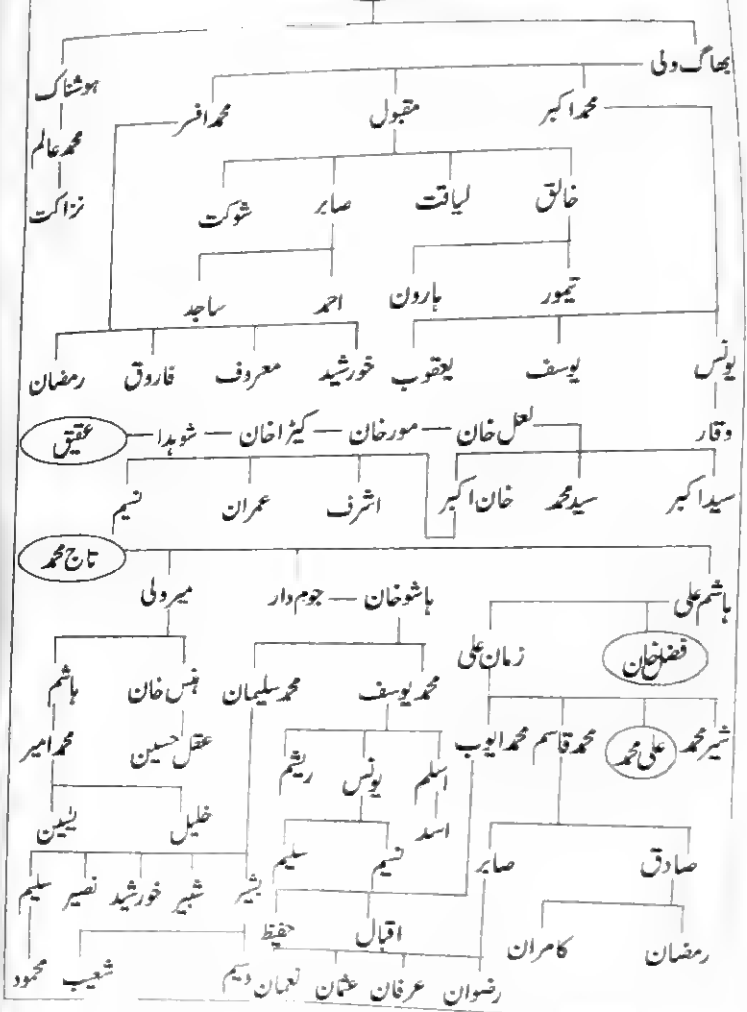 بھاگ ولی
ہوشناک
محمد اکبر مقبول محمد افسر
محمد عالم
خالق لیاقت صابر شوکت نزاکت
تیمور ہارون احمد ساجد
یونس یوسف یعقوب خورشید معروف فاروق رمضان
وقار لعل خان — مور خان — کیڑا خان — شوہدا — عقیق
سید اکبر سید محمد خان اکبر اشرف عمران نسیم
تاج محمد
ہاشم علی ہاشو خان — جوم دار میر ولی
فضل خان زمان علی محمد یوسف محمد سلیمان ہنس خان ہاشم
شیر محمد علی محمد محمد قاسم محمد ایوب اسلم یونس ریشم عقل حسین محمد امیر
اسد خلیل یٰسین
صادق صابر نسیم سلیم بشیر شبیر خورشید نصیر سلیم
رمضان کامران اقبال حفیظ
رضوان عرفان عثمان نعمان وسیم شعیب محمود